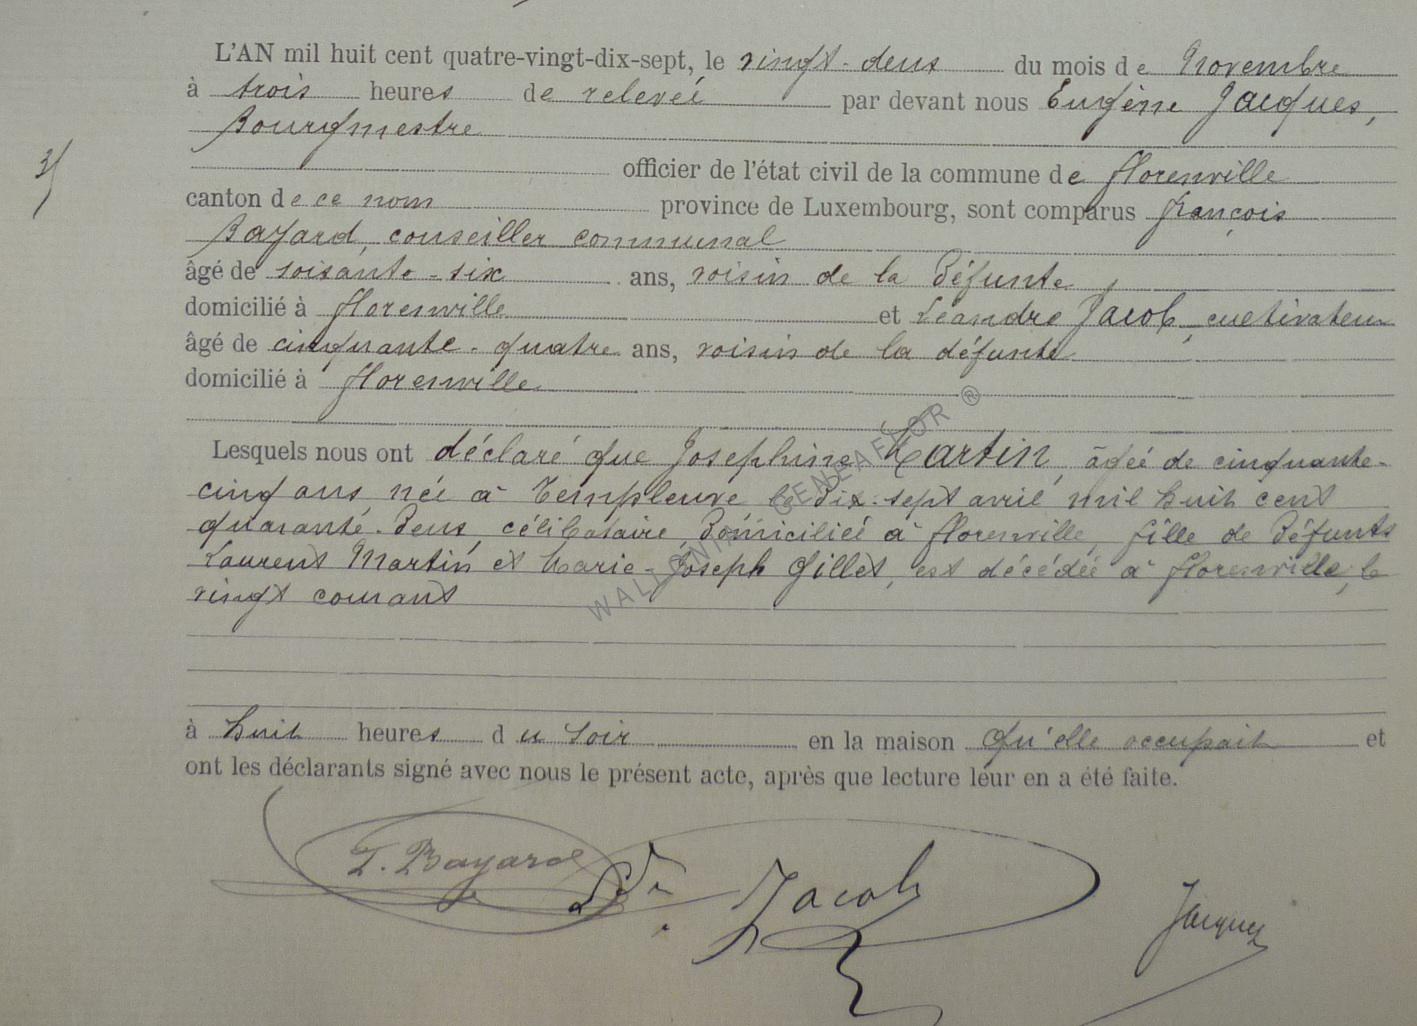 L'AN mil huit cent quatre-vingt-dix-sept, le vingt-deux du mois de Novembre
à trois heures de relevée par devant nous Eugène Jacques,
Bourgmestre
officier de l'état civil de la commune de Florenville
canton de ce nom province de Luxembourg, sont comparus François
Bayard, conseiller communal
âgé de soixante-six ans, voisin de la défunte
domicilié à Florenville et Léandre Jacob, cultivateur
âgé de cinquante-quatre ans, voisin de la défunte
domicilié à Florenville
Lesquels nous ont déclaré que Josephine Martin, âgée de cinquante-
cinq ans née à Templeuve le dix-sept avril mil huit cent
quarante-deux, célibataire, domiciliée à Florenville, fille de défunts
Laurent Martin et Marie-Joseph Gillet, est décédée à Florenville, le
vingt courant
à huit heures du soir en la maison qu'elle occupait et
ont les déclarants signé avec nous le présent acte, après que lecture leur en a été faite.
F. Bayard Jacob Jacques
WALLONIE GENEAFLOR ®